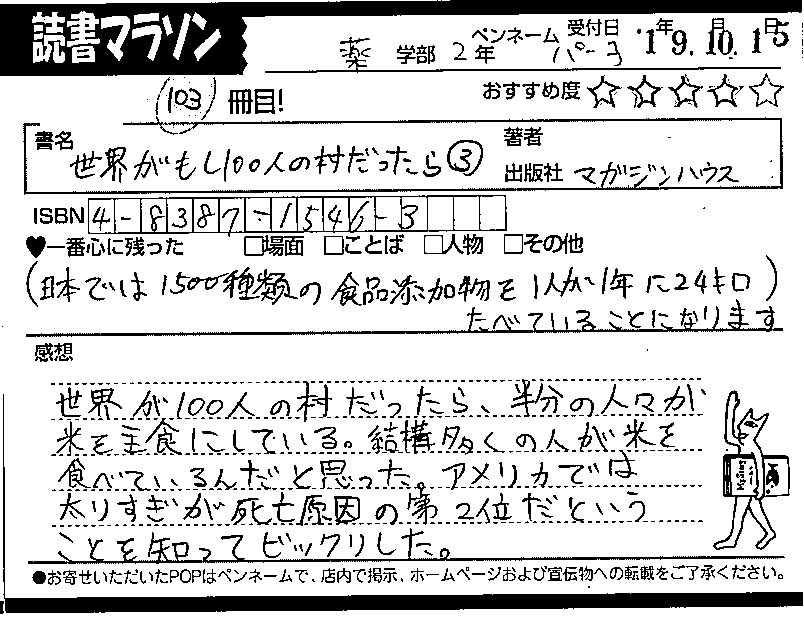 読書マラソン
薬 学部 2年 ペンネーム パーコ 受付日 '19.10.15
年 月 日
103 冊目! おすすめ度 ☆☆☆☆☆
書名 世界がもし100人の村だったら③
著者
出版社 マガジンハウス
ISBN 4-8387-1546-3
♥一番心に残った □場面 □ことば □人物 □その他
(日本では1500種類の食品添加物を1人が1年に24キロ)
たべていることになります
感想
世界が100人の村だったら、半分の人々が
米を主食にしている。結構多くの人が米を
食べているんだと思った。アメリカでは
太りすぎが死亡原因の第2位だという
ことを知ってビックリした。
●お寄せいただいたPOPはペンネームで、店内で掲示、ホームページおよび宣伝物への転載をご了承ください。